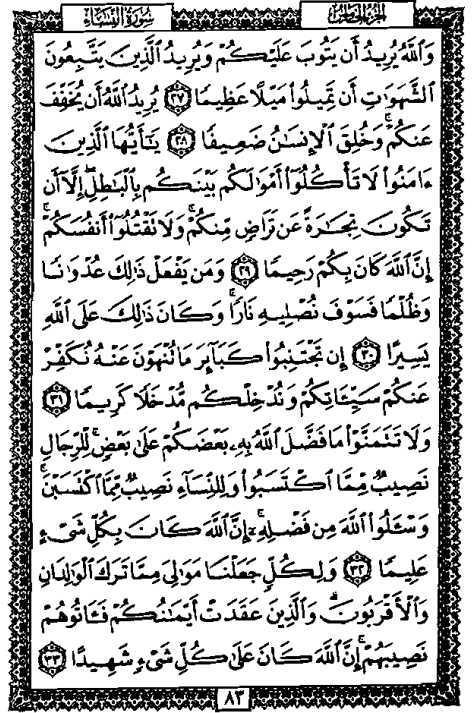 سُورَةُ النِّسَاءِ
الجُزءُ الخَامِسُ
وَٱللَّهُ يُرِيدُ أَن يَتُوبَ عَلَيْكُمْ وَيُرِيدُ ٱلَّذِينَ يَتَّبِعُونَ
ٱلشَّهَوَٰتِ أَن تَمِيلُوا۟ مَيْلًا عَظِيمًا ٢٧ يُرِيدُ ٱللَّهُ أَن يُخَفِّفَ
عَنكُمْ ۚ وَخُلِقَ ٱلْإِنسَٰنُ ضَعِيفًا ٢٨ يَٰٓأَيُّهَا ٱلَّذِينَ
ءَامَنُوا۟ لَا تَأْكُلُوٓا۟ أَمْوَٰلَكُم بَيْنَكُم بِٱلْبَٰطِلِ إِلَّآ أَن
تَكُونَ تِجَٰرَةً عَن تَرَاضٍ مِّنكُمْ ۚ وَلَا تَقْتُلُوٓا۟ أَنفُسَكُمْ ۚ
إِنَّ ٱللَّهَ كَانَ بِكُمْ رَحِيمًا ٢٩ وَمَن يَفْعَلْ ذَٰلِكَ عُدْوَٰنًا
وَظُلْمًا فَسَوْفَ نُصْلِيهِ نَارًا ۚ وَكَانَ ذَٰلِكَ عَلَى ٱللَّهِ
يَسِيرًا ٣٠ إِن تَجْتَنِبُوا۟ كَبَآئِرَ مَا تُنْهَوْنَ عَنْهُ نُكَفِّرْ
عَنكُمْ سَيِّـَٔاتِكُمْ وَنُدْخِلْكُم مُّدْخَلًا كَرِيمًا ٣١
وَلَا تَتَمَنَّوْا۟ مَا فَضَّلَ ٱللَّهُ بِهِۦ بَعْضَكُمْ عَلَىٰ بَعْضٍ ۚ لِّلرِّجَالِ
نَصِيبٌ مِّمَّا ٱكْتَسَبُوا۟ ۖ وَلِلنِّسَآءِ نَصِيبٌ مِّمَّا ٱكْتَسَبْنَ ۚ
وَسْـَٔلُوا۟ ٱللَّهَ مِن فَضْلِهِۦٓ ۗ إِنَّ ٱللَّهَ كَانَ بِكُلِّ شَىْءٍ
عَلِيمًا ٣٢ وَلِكُلٍّ جَعَلْنَا مَوَٰلِىَ مِمَّا تَرَكَ ٱلْوَٰلِدَانِ
وَٱلْأَقْرَبُونَ ۚ وَٱلَّذِينَ عَقَدَتْ أَيْمَٰنُكُمْ فَـَٔاتُوهُمْ
نَصِيبَهُمْ ۚ إِنَّ ٱللَّهَ كَانَ عَلَىٰ كُلِّ شَىْءٍ شَهِيدًا ٣٣
٨٣